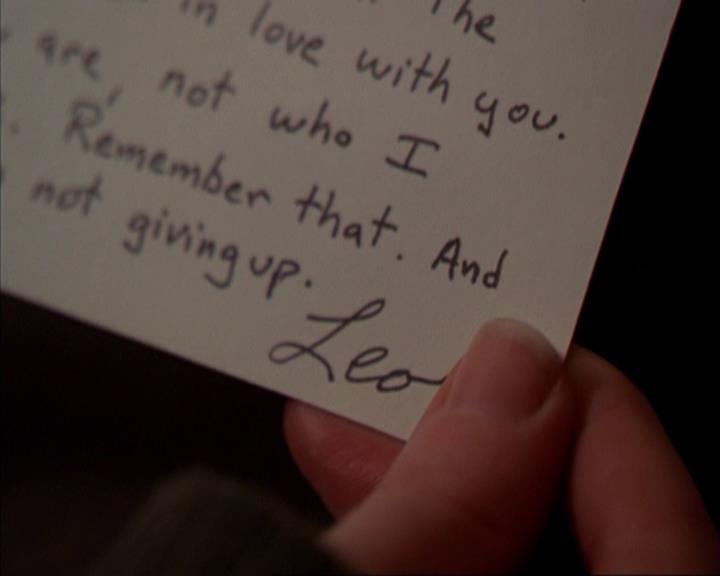 The
in love with you.
are, not who I
Remember that. And
not giving up.
Leo